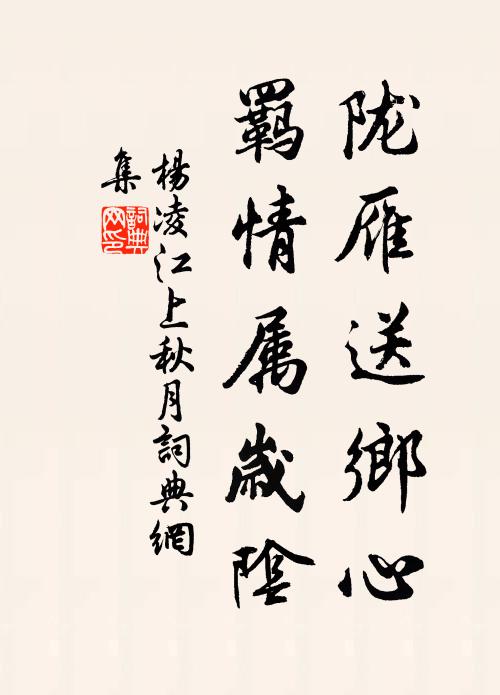 陇雁送鄉心
羈情属歲陰
楊凌江上秋月詞典網
集
詞典
网印